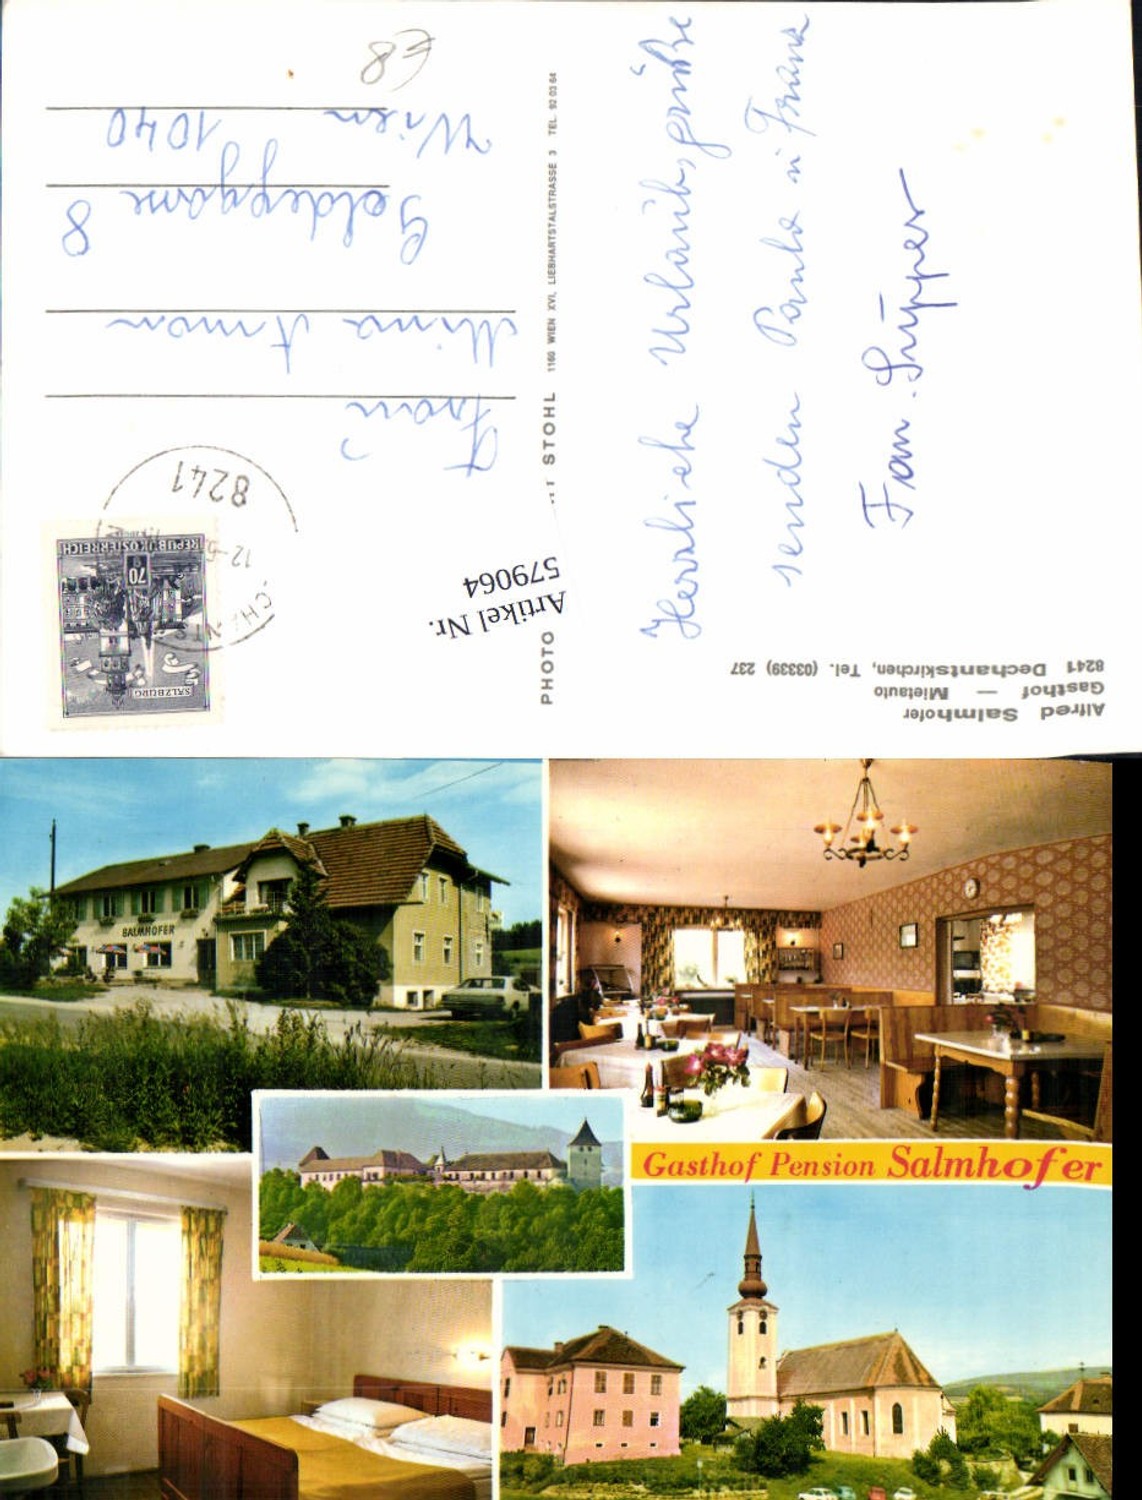 Alfred Salmhofer
Gasthof — Mietauto
8241 Dechantskirchen, Tel. (03339) 237
Herzliche Urlaubsgrüße
senden Paula u Franz
PHOTO
STOHL 1160 WIEN XVI, LIEBHARTSTALSTRASSE 3 TEL. 92 03 64
Artikel Nr.
579064
SALZBURG
70
REPUBLIK ÖSTERREICH
8241
Frau
8
Wien 1040
€8
SALMHOFER
Gasthof Pension Salmhofer